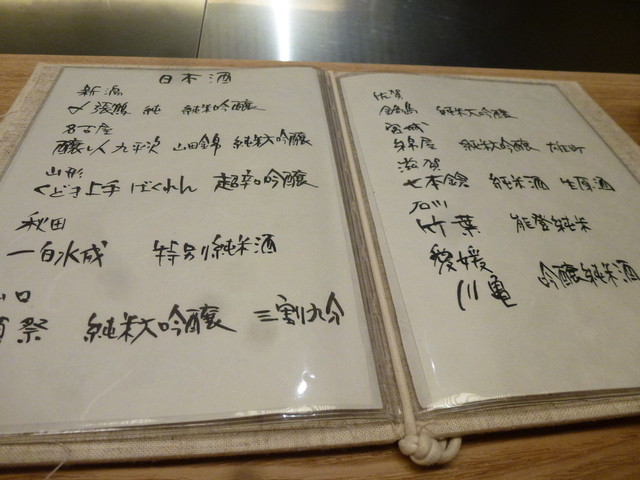 日本酒
新潟
〆張鶴 純 純米吟醸
名古屋
醸し人九平次 山田錦 純米大吟醸
山形
くどき上手 ばくれん 超辛吟醸
秋田
一白水成 特別純米酒
山口
獺祭 純米大吟醸 三割九分
佐賀
鍋島 純米大吟醸
宮城
綿屋 純米大吟醸
滋賀
七本鎗 純米酒 生原酒
石川
竹葉 能登純米
愛媛
川亀 吟醸純米酒